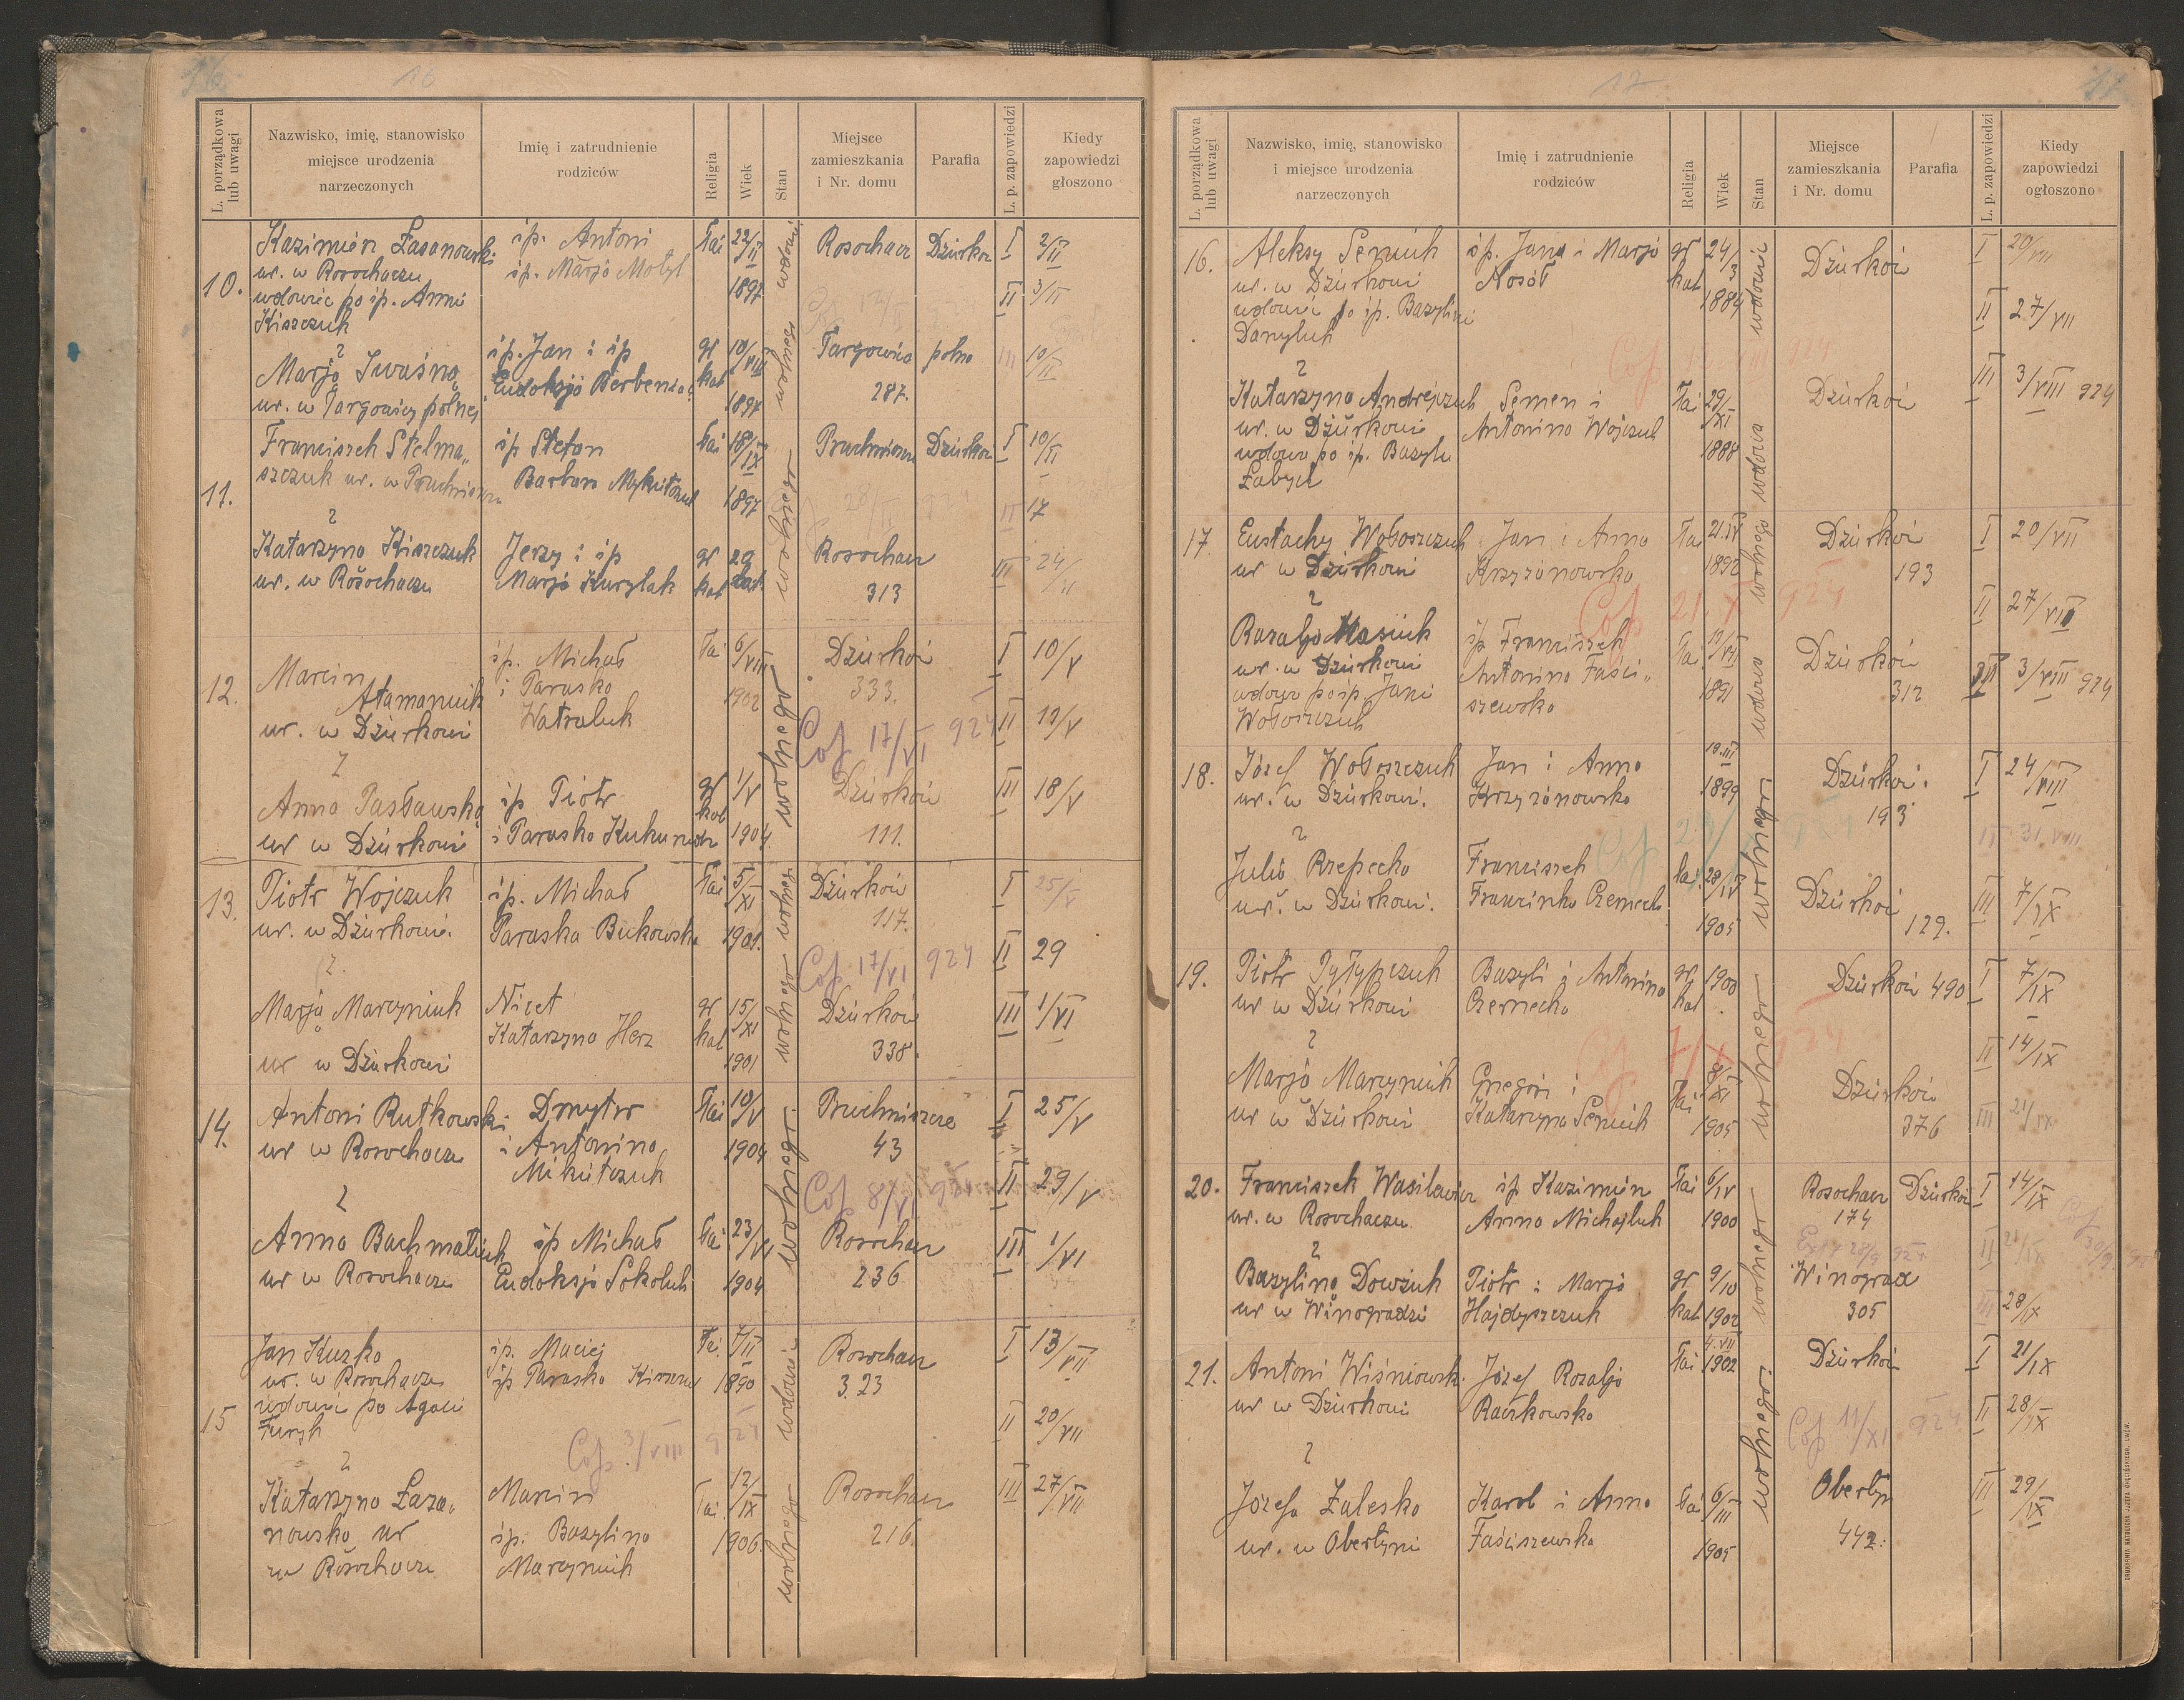 16
L. porządkowa lub uwagi
Nazwisko, imię, stanowisko
miejsce urodzenia
narzeczonych
Imię i zatrudnienie
rodziców
Religia
Wiek
Stan
Miejsce
zamieszkania
i Nr. domu
Parafia
L. p. zapowiedzi
Kiedy
zapowiedzi
głoszono
10.
Kazimierz Łazanowski
ur. w Rosochaczu
wdowiec po śp. Annie
Kiszczuk
śp. Antoni
śp. Marja Motyl
łać
22/II
1897
wdowiec
Rosochacz
Dżurków
I 2/II
II 3/II
z
Marją
ur. w Targowicy polnej
śp. Jan i śp
Eudoksja
gr
kat
10/VIII
1897
wolnego
Targowica polna
287.
III 10/II
11.
Franciszek Stelma„
szczuk ur. w
śp Stefan
Barbara
łać
18/IX
1897
Dżurków
I 10/II
II 17
z
Katarzyna Kiszczuk
ur. w Rosochaczu
Jerzy i śp
Marja Kurylak
gr
kat
29
lat
wolnego
Rosochacz
313
III 24/II
12.
Marcin
Atamaniuk
ur. w Dżurkowie
śp. Michał
i Paraska
Watraluk
łać
6/VIII
1902
Dżurków
333.
I 10/V
Cop 17/VI 924
II
z
Anna Pasławska
ur w Dżurkowie
śp Piotr
i Paraska
gr
kat
1/V
1904.
wolnego
Dżurków
111.
III 18/V
13.
Piotr Wojczuk
ur. w Dżurkowie.
śp. Michał
Paraska Bukowska
łać
5/XI
1901.
wolnego
Dżurków
117.
I 25/V
Cop 17/VI 924
II 29
z.
Marją Marcyniuk
ur w Dżurkowie
Katarzyna Herz
gr
kat
15/XI
1901
wolnego
Dżurków
338.
III 1/VI
14.
Antoni Rutkowski
ur w Rosochaczu
Dmytro
i Antonina
Mikietczuk
łać
10/V
1904
43
I 25/V
Cop 8/VI 924
II 29/V
z
Anna Bachmatiuk
ur w Rosochaczu
śp Michał
Eudoksja Sokoluk
łać
23/VI
1904
wolnego
Rosochacz
236
III 1/VI
15
Jan Kuzko
ur. w Rosochaczu
wdowiec po Agacie
Furyk
śp. Maciej
śp Paraska
łać
7/II
1890
wdowiec
Rosochacz
323
I 13/VII
II 20/VII
Cop. 3/VIII 924
z
Katarzyna Łaza„
nowska ur
w Rosochaczu
Marcin
śp. Bazylina
Marcyniuk
łać
12/IX
1906.
wolnego
Rosochacz
216
III 27/VII
17
L. porządkowa lub uwagi
Nazwisko, imię, stanowisko
i miejsce urodzenia
narzeczonych
Imię i zatrudnienie
rodziców
Religia
Wiek
Stan
Miejsce
zamieszkania
i Nr. domu
Parafia
L. p. zapowiedzi
Kiedy
zapowiedzi
ogłoszono
16.
Aleksy Semiuk
ur. w Dżurkowie
wdowiec po śp. Bazylinie
Danyluk
śp. Jana i Marja
Nosół
gr
kat
24/3
1884
wdowiec
Dżurków
I 20/VII
II 27/VII
z
Katarzyna Andrejczuk
ur. w Dżurkowie
wdowa po śp. Bazylu
Semen i
Antonina Wojczuk
łać
29/XI
1888
wdowa
Dżurków
III 3/VIII 924
17.
Eustachy Wołoszczuk
ur w Dżurkowie
Jan i Anna
Krzyżanowska
łać
21.IV
1892
wolnego
Dżurków
193
I 20/VII
Cop 924
II 27/VII
z
Rozalja Masiuk
ur. w Dżurkowie
wdowa po śp. Janie
Wołoszczuk
śp Franciszek
Antonina Faści„
szewska
łać
1891
wdowa
Dżurków
312
III 3/VIII 924
18.
Józef Wołoszczuk
ur. w Dżurkowie.
Jan i Anna
Krzyżanowska
19.III
1899
Dżurków.
193
I 24/VIII
II 31.VIII
z
Julia Rzepecka
ur. w Dżurkowie.
Franciszek
Franciszka
łać
28/IV
1905
wolnego
Dżurków
129.
III 7/IX
19.
Piotr
ur w Dżurkowie
Bazyli i Antonina
Czernecka
gr
kat
1900
Dżurków 490
I 7/IX
II 14/IX
z
Marja Marcyniuk
ur w Dżurkowie
Grzegorz i
Katarzyna Semiuk
łać
1905
wolnego
Dżurków
376
III 21/IX
20.
Franciszek Wasilewicz
ur. w Rosochaczu
śp Kazimierz
Anna Michajluk
łać
6/IV
1900
Rosochacz
174
Dżurków
I 14/IX
II 21/IX
z
Bazylina Dowżuk
ur w Winogradzie
Piotr i Marja
Hajdyszczuk
gr
kat
9/10
1902
wolnego
Winograd
305
III 28/IX
21.
Antoni Wiśniowski
ur w Dżurkowie
Józef Rozalja
Raczkowska
łać
4.VII
1902
Dżurków
I 21/IX
II 28/IX
Cop 11/XI 924
z
Józefa Zaleska
ur. w Obertynie
Karol i Anna
Faściszewska
łać
6/III
1905
wolnego
Obertyn
442.
III 29/IX